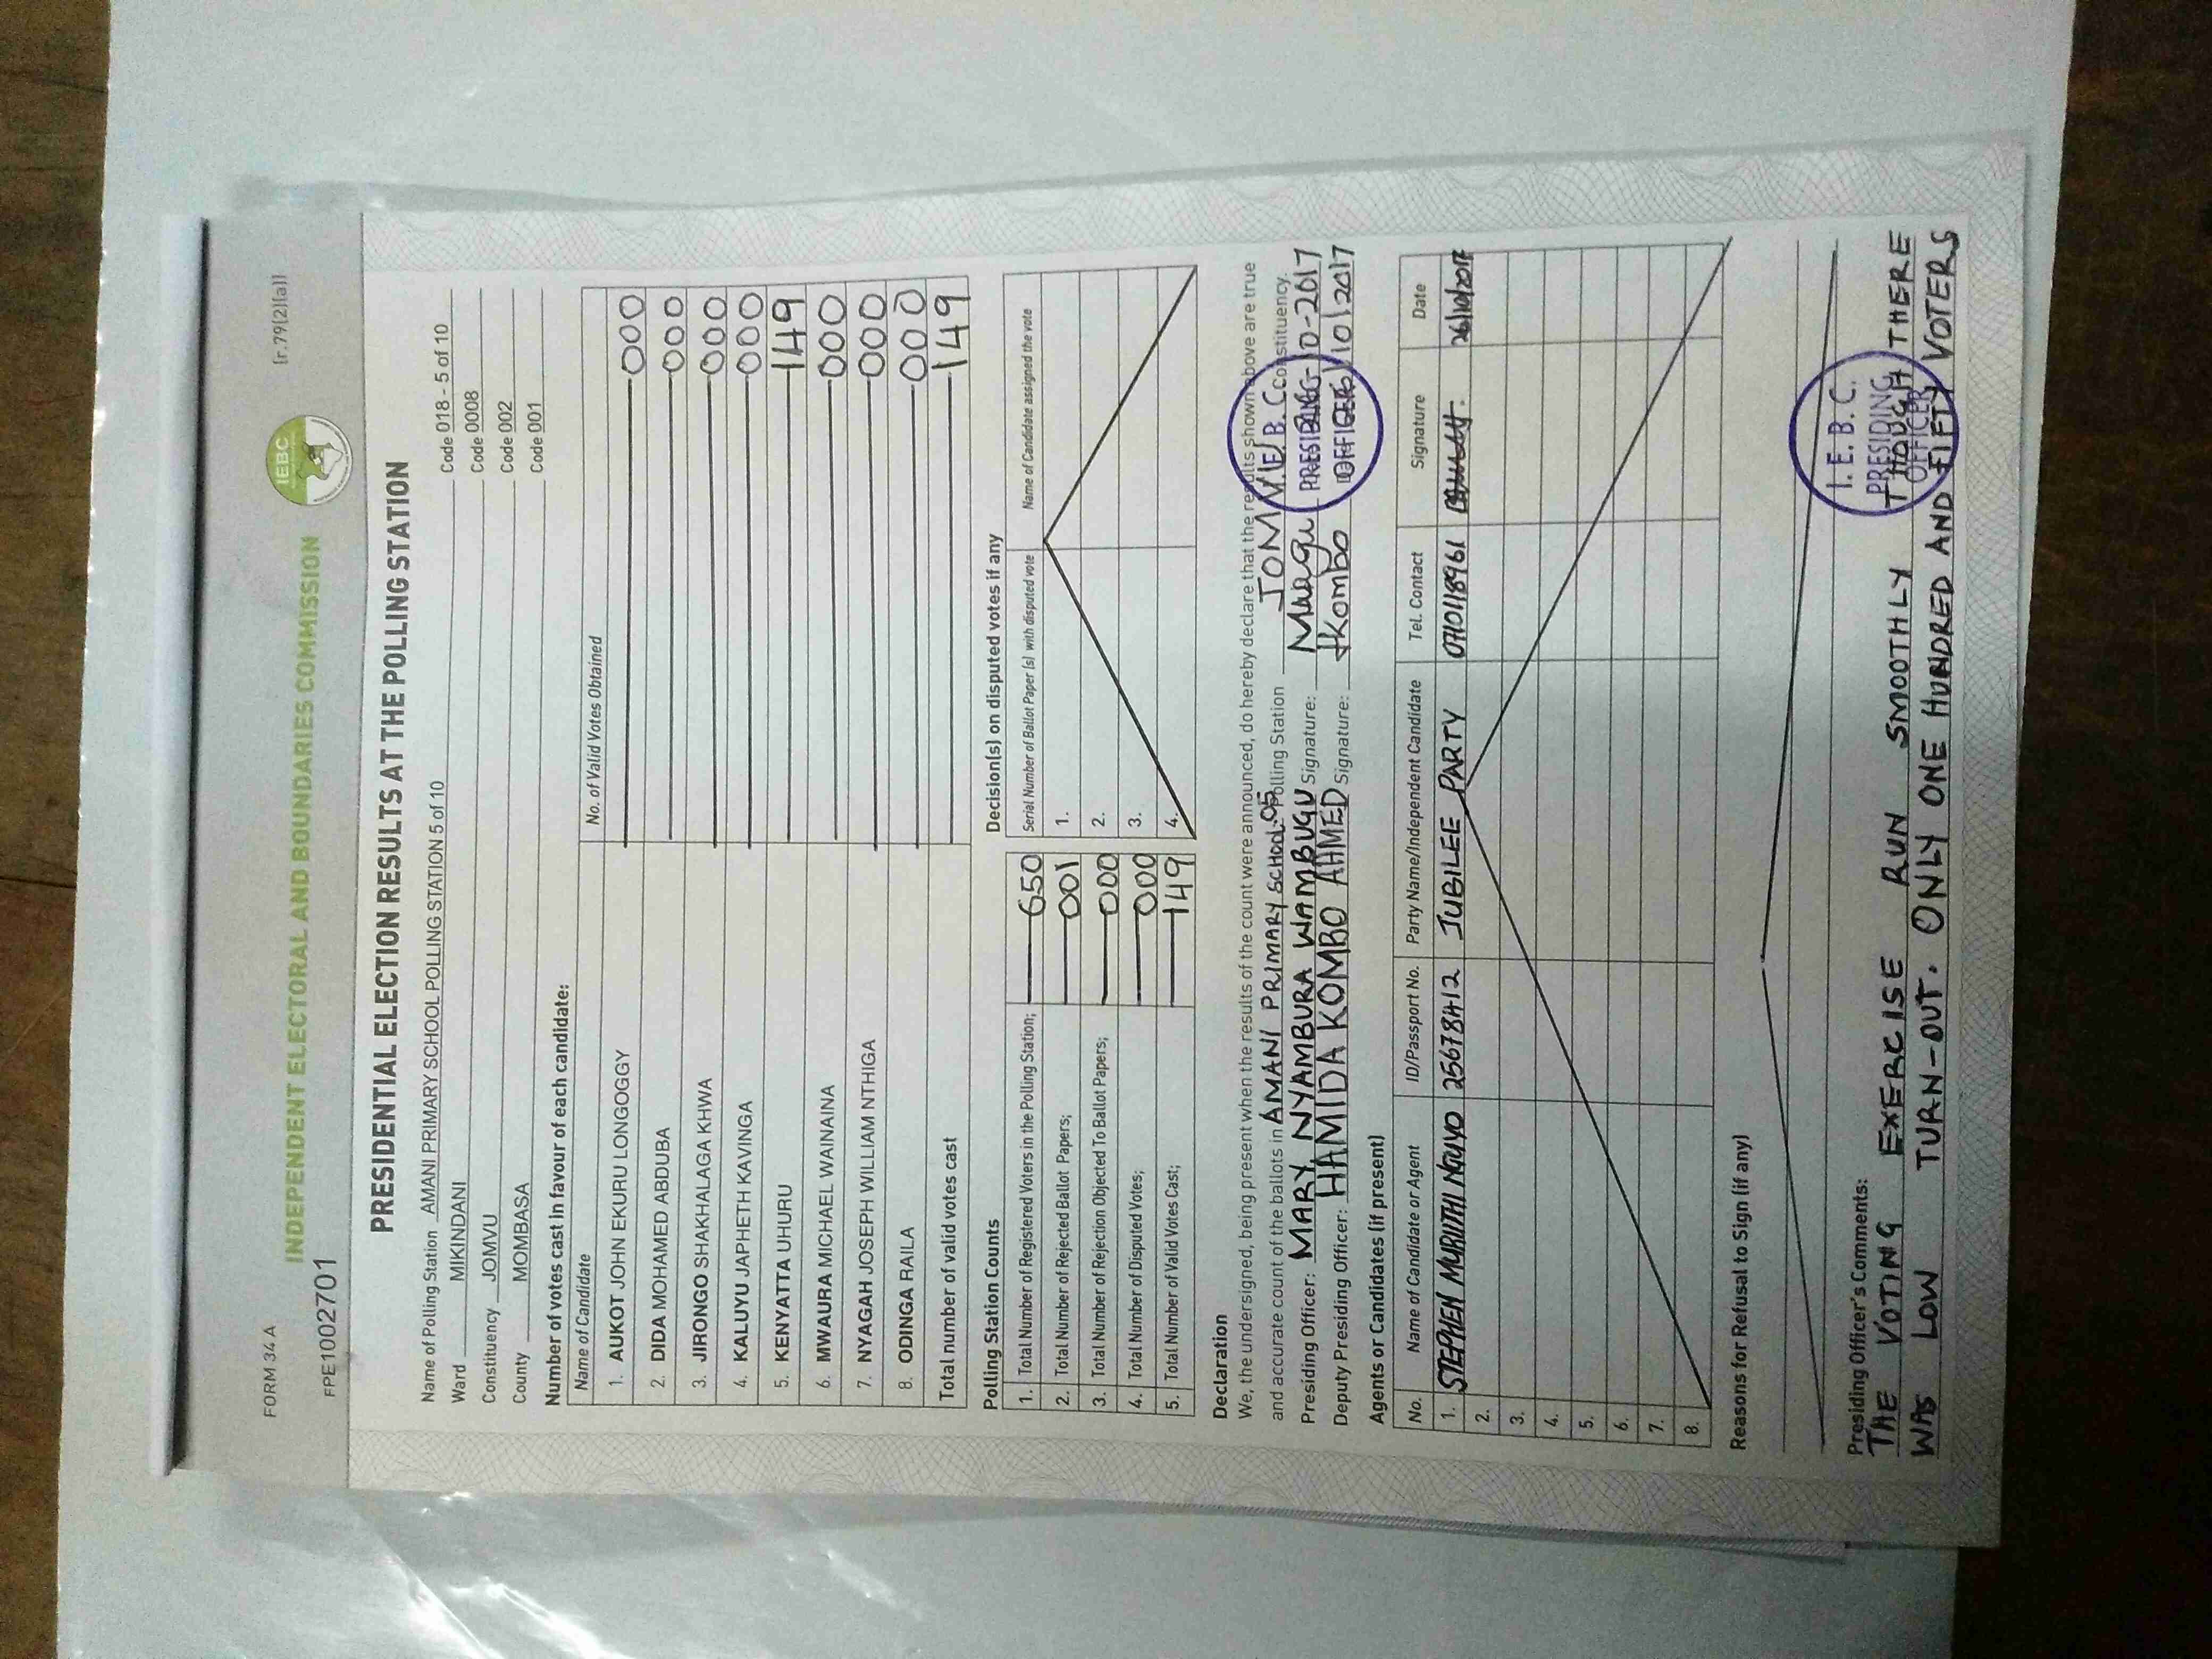 FORM 34 A
[r.79(2)(a)]
IEBC
INDEPENDENT ELECTORAL AND BOUNDARIES COMMISSION
FPE1002701
PRESIDENTIAL ELECTION RESULTS AT THE POLLING STATION
Name of Polling Station AMANI PRIMARY SCHOOL POLLING STATION 5 of 10 Code 018 - 5 of 10
Ward MIKINDANI Code 0008
Constituency JOMVU Code 002
County MOMBASA Code 001
Number of votes cast in favour of each candidate:
Name of Candidate No. of Valid Votes Obtained
1. AUKOT JOHN EKURU LONGOGGY 000
2. DIDA MOHAMED ABDUBA 000
3. JIRONGO SHAKHALAGA KHWA 000
4. KALUYU JAPHETH KAVINGA 000
5. KENYATTA UHURU 149
6. MWAURA MICHAEL WAINAINA 000
7. NYAGAH JOSEPH WILLIAM NTHIGA 000
8. ODINGA RAILA 000
Total number of valid votes cast 149
Polling Station Counts
1. Total Number of Registered Voters in the Polling Station; 650
2. Total Number of Rejected Ballot Papers; 001
3. Total Number of Rejection Objected To Ballot Papers; 000
4. Total Number of Disputed Votes; 000
5. Total Number of Valid Votes Cast; 149
Decision(s) on disputed votes if any
Serial Number of Ballot Paper (s) with disputed vote Name of Candidate assigned the vote
1.
2.
3.
4.
Declaration
We, the undersigned, being present when the results of the count were announced, do hereby declare that the results shown above are true
and accurate count of the ballots in AMANI PRIMARY SCHOOL-05 Polling Station JOMVU Constituency.
Presiding Officer: MARY NYAMBURA WAMBUGU Signature: 10-2017
Deputy Presiding Officer: HAMIDA KOMBO AHMED Signature: HKombo 10/2017
I.E.B.C.
PRESIDING
OFFICER
Agents or Candidates (if present)
No. Name of Candidate or Agent ID/Passport No. Party Name/Independent Candidate Tel. Contact Signature Date
1. STEPHEN MURIITHI NGUYO 25678412 JUBILEE PARTY 0710118961 26/10/2017
2.
3.
4.
5.
6.
7.
8.
Reasons for Refusal to Sign (if any)
Presiding Officer's Comments:
THE VOTING EXERCISE RUN SMOOTHLY THOUGH THERE
WAS LOW TURN-OUT. ONLY ONE HUNDRED AND FIFTY VOTERS
I.E.B.C.
PRESIDING
OFFICER